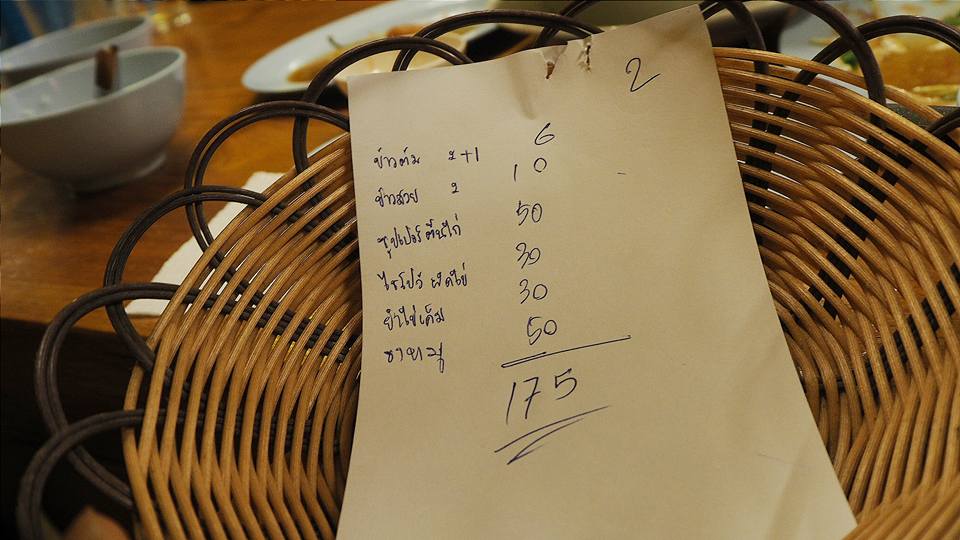 2
ข้าวต้ม 2+1 6
ข้าวสวย 2 10
ซุปเปอร์ตีนไก่ 50
ไชโป๊ว ผัดไข่ 30
ยำไข่เค็ม 30
ขาหมู 50
175